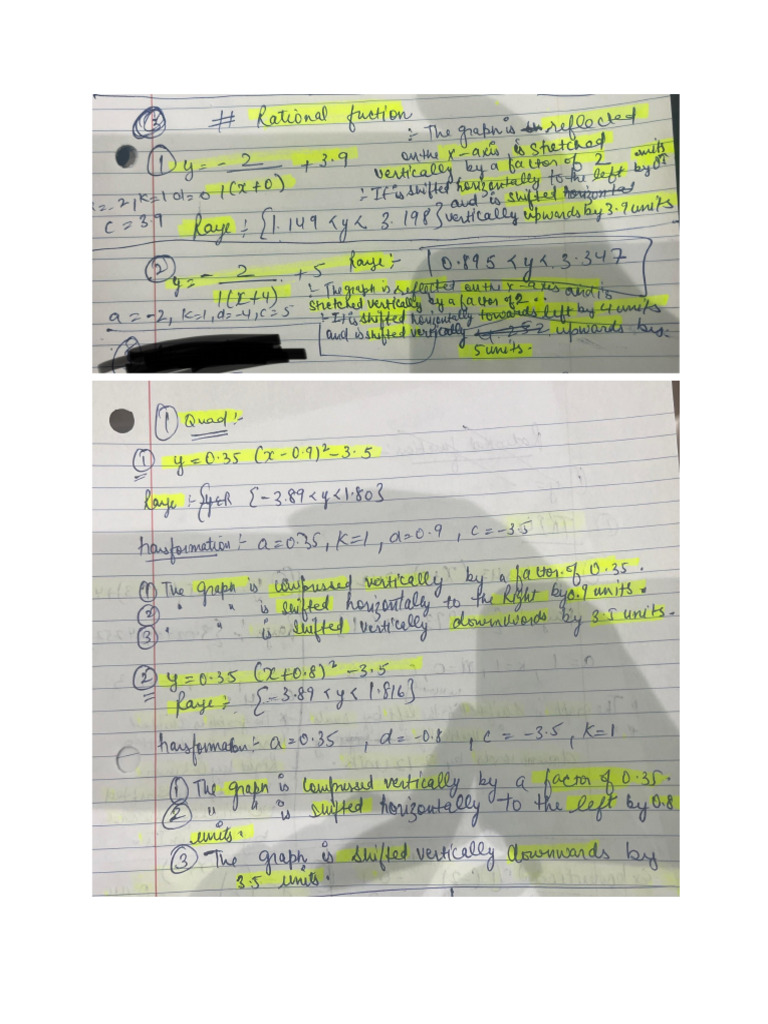 ③ # Rational fuction
① y = - 2 / 1(x+0) + 3.9
:- The graph is reflected
on the x-axis, is stretched
vertically by a factor of 2
:- It is shifted horizontally to the left by 0 units
and is shifted
vertically upwards by 3.9 units
= -2, k=1 d=0
c = 3.9
Raye :- {1.149 < y < 3.198}
② y = - 2 / 1(x+4) + 5
Raye :- 0.895 < y < 3.347
:- The graph is reflected on the x-axis and is
stretched vertically by a factor of 2.
:- It is shifted horizontally towards left by 4 units
and is shifted vertically upwards by
5 units.
a = -2, k=1, d=-4, c=5
① Quad :-
① y = 0.35 (x-0.9)² - 3.5
Raye :- {y∈R {-3.89 < y < 1.80}
transformation :- a = 0.35, k=1, d=0.9, c=-3.5
① The graph is compressed vertically by a factor of 0.35.
② " " is shifted horizontally to the Right by 0.9 units.
③ " " is shifted vertically downwords by 3.5 units.
② y = 0.35 (x+0.8)² - 3.5
Raye :- {-3.89 < y < 1.816}
transformation :- a = 0.35, d = -0.8, c = -3.5, k=1
① The graph is compressed vertically by a factor of 0.35.
② " " is shifted horizontally to the left by 0.8
units.
③ The graph is shifted vertically downwards by
3.5 units.